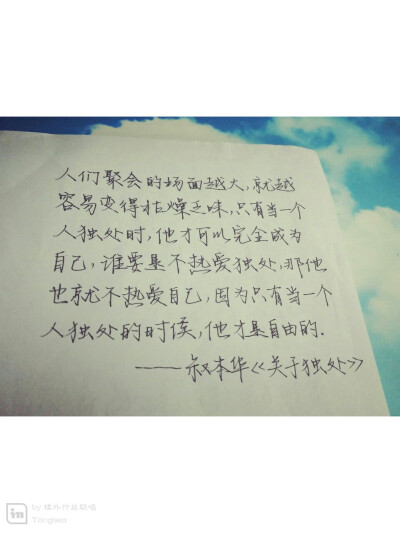 人们聚会的场面越大,就越
容易变得枯燥乏味,只有当一个
人独处时,他才可以完全成为
自己,谁要是不热爱独处,那他
也就不热爱自己,因为只有当一个
人独处的时候,他才是自由的.
——叔本华《关于独处》
in
by: